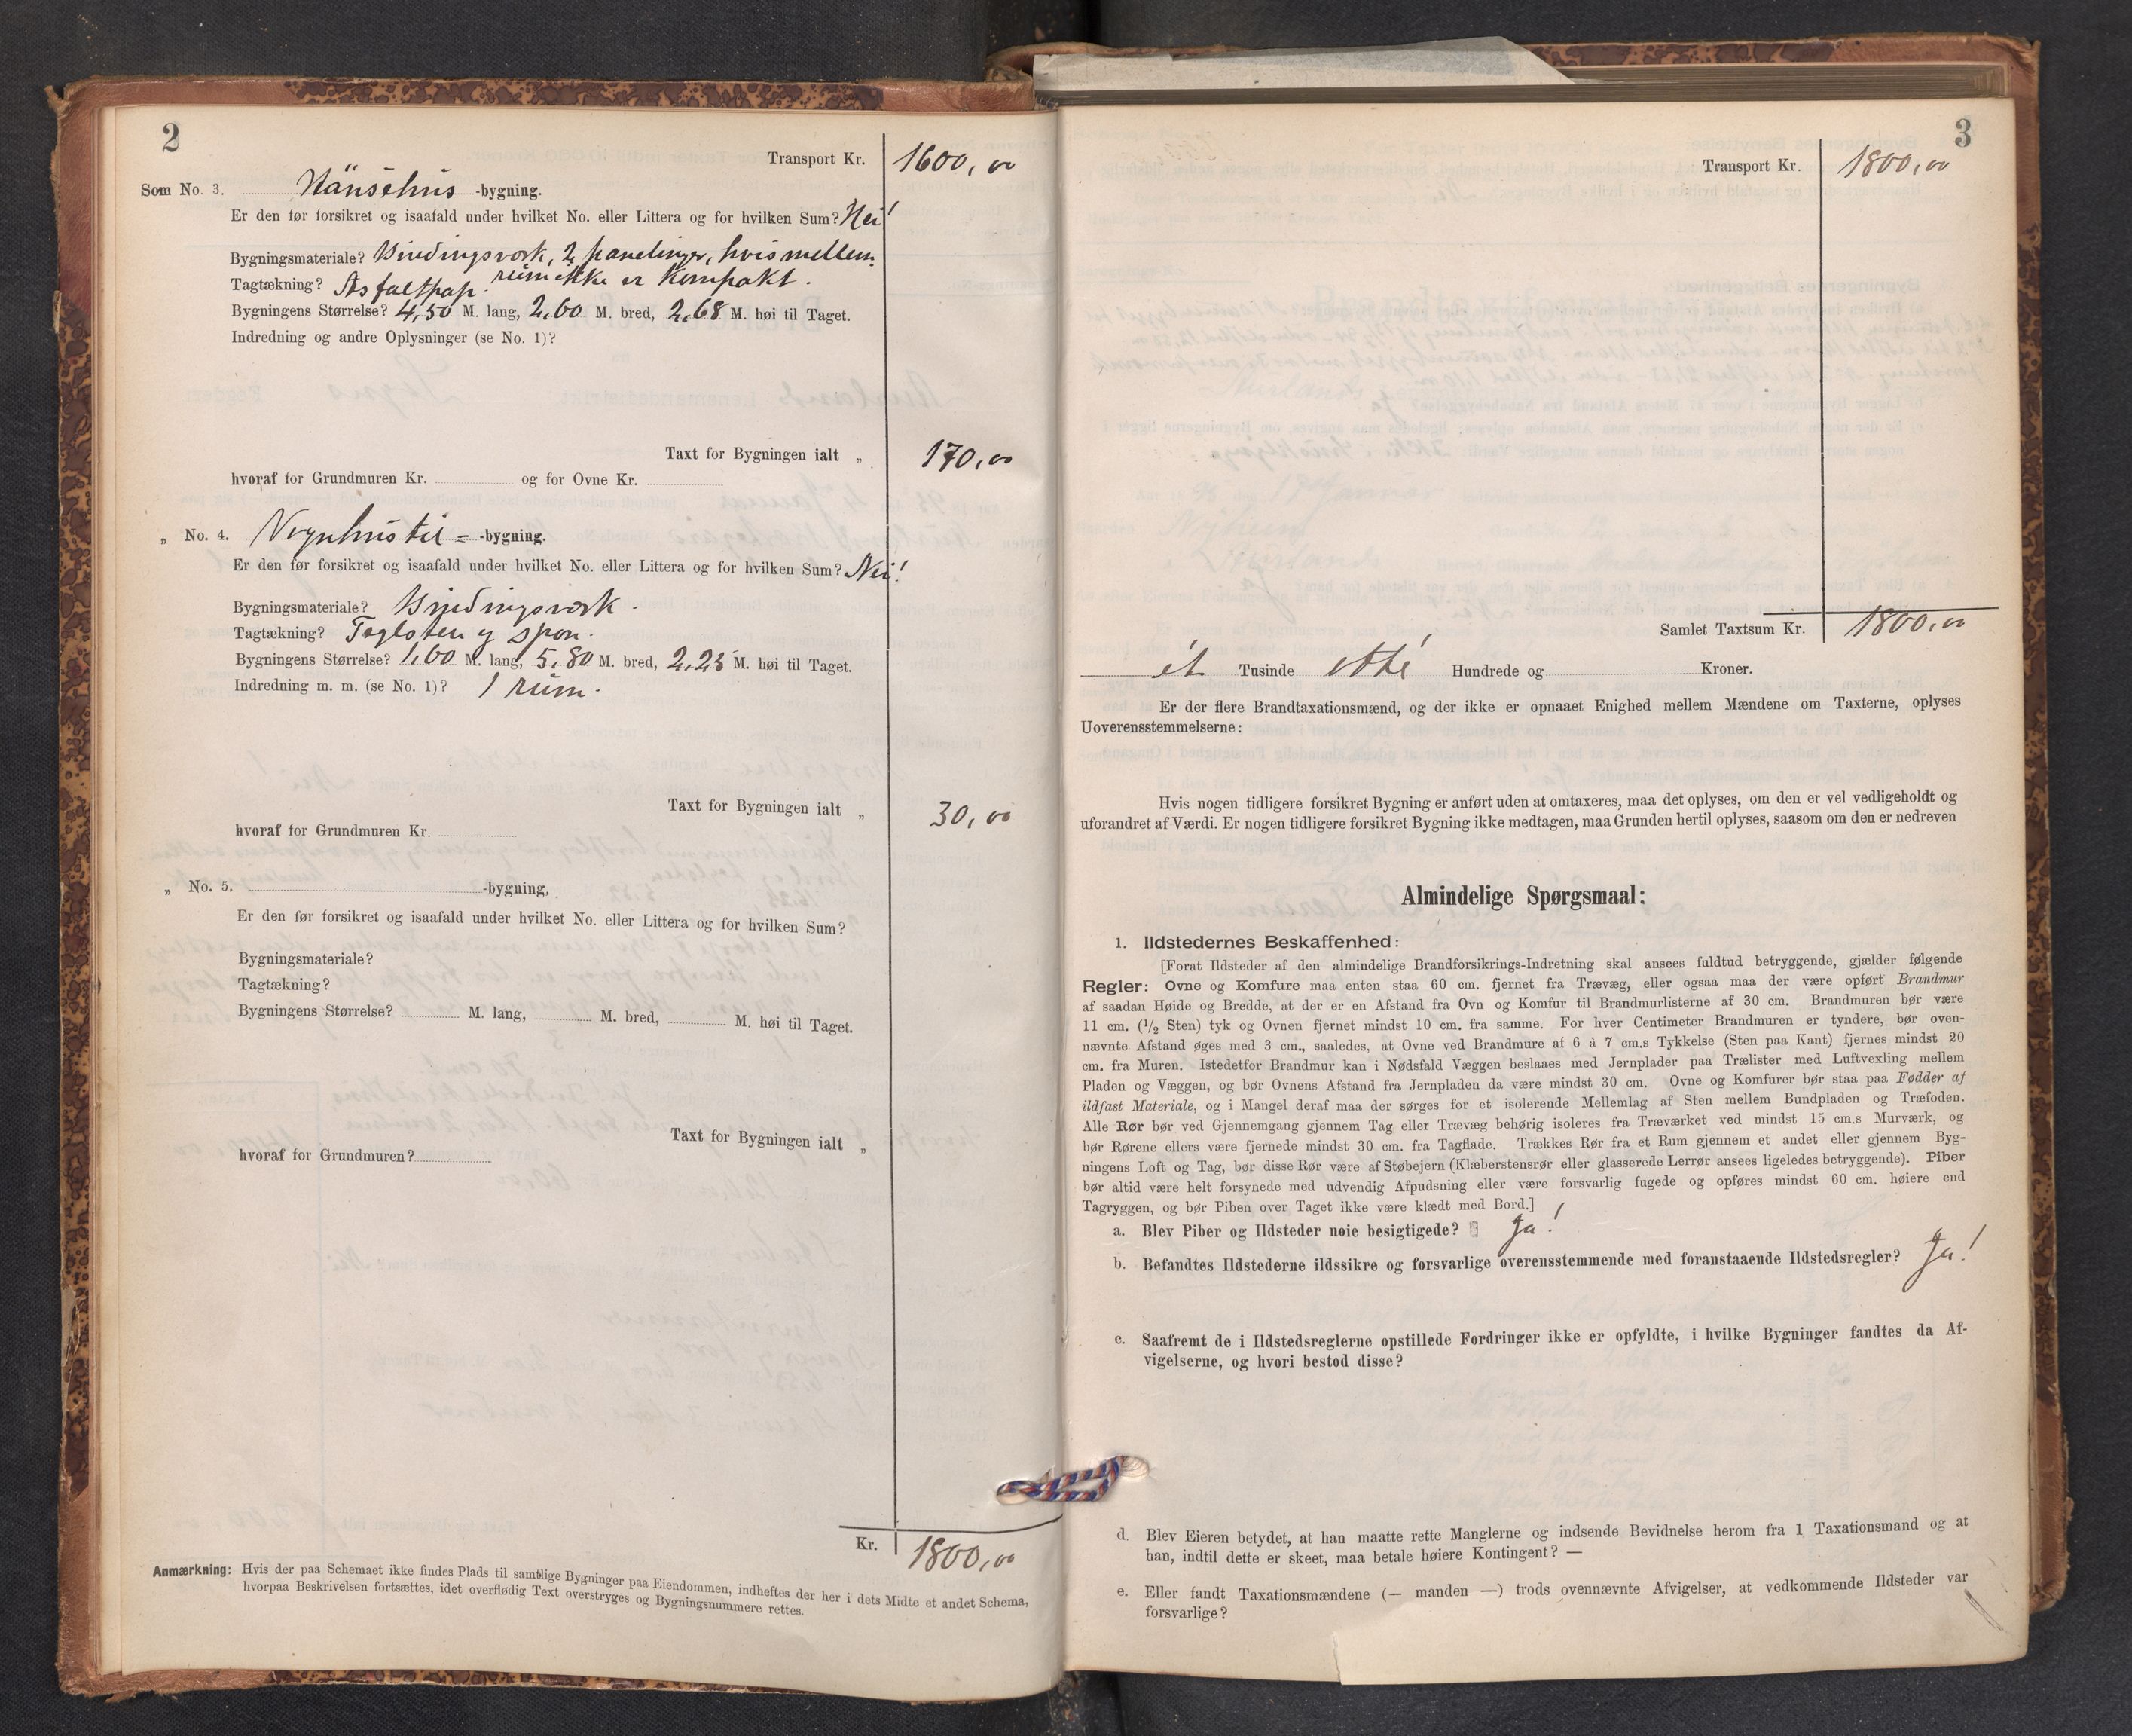 2
Transport Kr. 1600,00
Som No. 3. Hönsehus -bygning.
Er den før forsikret og isaafald under hvilket No. eller Littera og for hvilken Sum? Nei!
Bygningsmateriale? Bindingsverk, 2 panelinger, hvis mellem-
rum ikke er kompakt.
Tagtækning? Asfaltpap.
Bygningens Størrelse? 4,50 M. lang, 2,60 M. bred, 2,68 M. høi til Taget.
Indredning og andre Oplysninger (se No. 1)?
Taxt for Bygningen ialt „ 170,00
hvoraf for Grundmuren Kr. og for Ovne Kr.
„ No. 4. Vognhustil- -bygning.
Er den før forsikret og isaafald under hvilket No. eller Littera og for hvilken Sum? Nei!
Bygningsmateriale? Bindingsverk.
Tagtækning? Taglsten og spon.
Bygningens Størrelse? 1,60 M. lang, 5,80 M. bred, 2,25 M. høi til Taget.
Indredning m. m. (se No. 1)? 1 rum.
Taxt for Bygningen ialt „ 30,00
hvoraf for Grundmuren Kr.
„ No. 5. -bygning,
Er den før forsikret og isaafald under hvilket No. eller Littera og for hvilken Sum?
Bygningsmateriale?
Tagtækning?
Bygningens Størrelse? M. lang, M. bred, M. høi til Taget.
Taxt for Bygningen ialt „
hvoraf for Grundmuren?
Kr. 1800,00
Anmærkning: Hvis der paa Schemaet ikke findes Plads til samtlige Bygninger paa Eiendommen, indheftes der her i dets Midte et andet Schema,
hvorpaa Beskrivelsen fortsættes, idet overflødig Text overstryges og Bygningsnummere rettes.
3
Transport Kr. 1800,00
Samlet Taxtsum Kr. 1800,00
ét Tusinde otte Hundrede og Kroner.
Er der flere Brandtaxationsmænd, og der ikke er opnaaet Enighed mellem Mændene om Taxterne, oplyses
Uoverensstemmelserne:
Hvis nogen tidligere forsikret Bygning er anført uden at omtaxeres, maa det oplyses, om den er vel vedligeholdt og
uforandret af Værdi. Er nogen tidligere forsikret Bygning ikke medtagen, maa Grunden hertil oplyses, saasom om den er nedreven
Almindelige Spørgsmaal:
1. Ildstedernes Beskaffenhed:
[Forat Ildsteder af den almindelige Brandforsikrings-Indretning skal ansees fuldtud betryggende, gjælder følgende
Regler: Ovne og Komfure maa enten staa 60 cm. fjernet fra Trævæg, eller ogsaa maa der være opført Brandmur
af saadan Høide og Bredde, at der er en Afstand fra Ovn og Komfur til Brandmurlisterne af 30 cm. Brandmuren bør være
11 cm. (1/2 Sten) tyk og Ovnen fjernet mindst 10 cm. fra samme. For hver Centimeter Brandmuren er tyndere, bør oven-
nævnte Afstand øges med 3 cm., saaledes, at Ovne ved Brandmure af 6 à 7 cm.s Tykkelse (Sten paa Kant) fjernes mindst 20
cm. fra Muren. Istedetfor Brandmur kan i Nødsfald Væggen beslaaes med Jernplader paa Trælister med Luftvexling mellem
Pladen og Væggen, og bør Ovnens Afstand fra Jernpladen da være mindst 30 cm. Ovne og Komfurer bør staa paa Fødder af
ildfast Materiale, og i Mangel deraf maa der sørges for et isolerende Mellemlag af Sten mellem Bundpladen og Træfoden.
Alle Rør bør ved Gjennemgang gjennem Tag eller Trævæg behørig isoleres fra Træværket ved mindst 15 cm.s Murværk, og
bør Rørene ellers være fjernede mindst 30 cm. fra Tagflade. Trækkes Rør fra et Rum gjennem et andet eller gjennem Byg-
ningens Loft og Tag, bør disse Rør være af Støbejern (Klæberstensrør eller glasserede Lerrør ansees ligeledes betryggende). Piber
bør altid være helt forsynede med udvendig Afpudsning eller være forsvarlig fugede og opføres mindst 60 cm. høiere end
Tagryggen, og bør Piben over Taget ikke være klædt med Bord.]
a. Blev Piber og Ildsteder nøie besigtigede? Ja!
b. Befandtes Ildstederne ildssikre og forsvarlige overensstemmende med foranstaaende Ildstedsregler? Ja!
c. Saafremt de i Ildstedsreglerne opstillede Fordringer ikke er opfyldte, i hvilke Bygninger fandtes da Af-
vigelserne, og hvori bestod disse?
d. Blev Eieren betydet, at han maatte rette Manglerne og indsende Bevidnelse herom fra 1 Taxationsmand og at
han, indtil dette er skeet, maa betale høiere Kontingent? —
e. Eller fandt Taxationsmændene (— manden —) trods ovennævnte Afvigelser, at vedkommende Ildsteder var
forsvarlige?